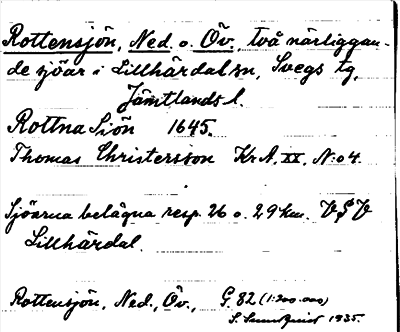 Rottensjön, Ned. o. Öv., två närliggan-
de sjöar i Lillhärdal sn, Svegs tg,
Jämtlands l.
Rottna Siön 1645.
Thomas Christersson Kr. A. XX, N:o 4.
Sjöarna belägna resp. 26 o. 29 km. VSV
Lillhärdal.
Rottensjön, Ned., Öv., G. 82 (1:200.000)
S. Sundquist 1935.